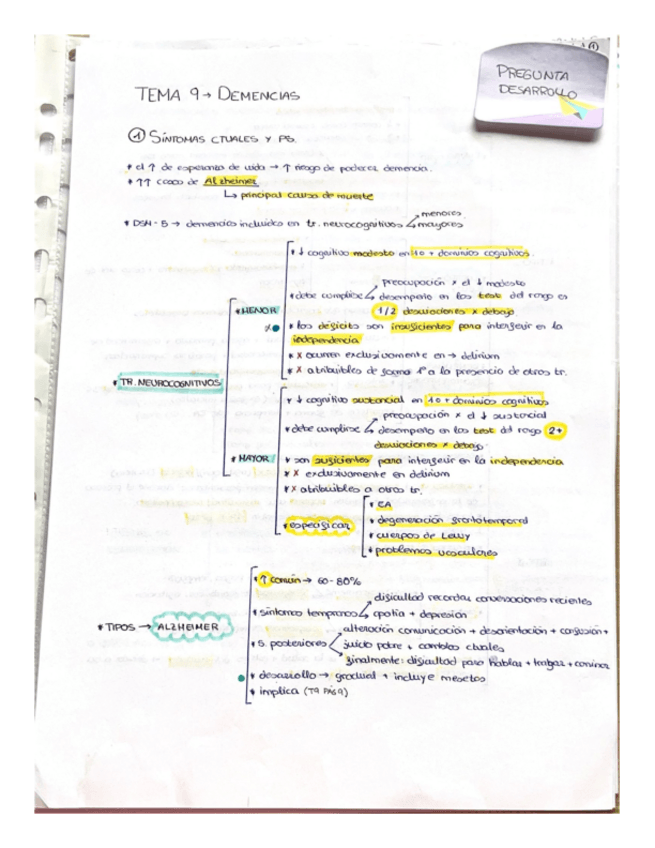 PREGUNTA
DESARROLLO
TEMA 9 → DEMENCIAS
① SÍNTOMAS CTUALES Y PS.
* el ↑ de esperanza de vida → ↑ riesgo de padecer demencia.
* ↑↑ casos de Alzheimer
↳ principal causa de muerte
* DSM-5 → demencias incluidas en tr. neurocognitivos
menores
mayores
* TR. NEUROCOGNITIVOS
* MENOR
* ↓ cognitivo modesto en 1 o + dominios cognitivos.
* debe cumplirse
preocupación x el ↓ modesto
desempeño en los test del rango es
1/2 desviaciones x debajo
* los déficits son insuficientes para interferir en la
independencia
* x ocurren exclusivamente en → delirium
* x atribuibles de forma 1ª a la presencia de otros tr.
* MAYOR
* ↓ cognitivo sustancial en 1 o + dominios cognitivos
* debe cumplirse
preocupación x el ↓ sustancial
desempeño en los test del rango 2+
desviaciones x debajo
* son suficientes para interferir en la independencia
* x exclusivamente en delirium
* x atribuibles a otros tr.
* especificar
* EA
* degeneración frontotemporal
* cuerpos de Lewy
* problemas vasculares
* TIPOS → ALZHEIMER
* ↑ común → 60-80%
* síntomas tempranos
dificultad recordar conversaciones recientes
apatía + depresión
* S. posteriores
alteración comunicación + desorientación + confusión +
juicio pobre + cambios ctuales
finalmente: dificultad para hablar + tragar + caminar
* desarrollo → gradual + incluye mesetas
* implica (T9 PÁG 9)